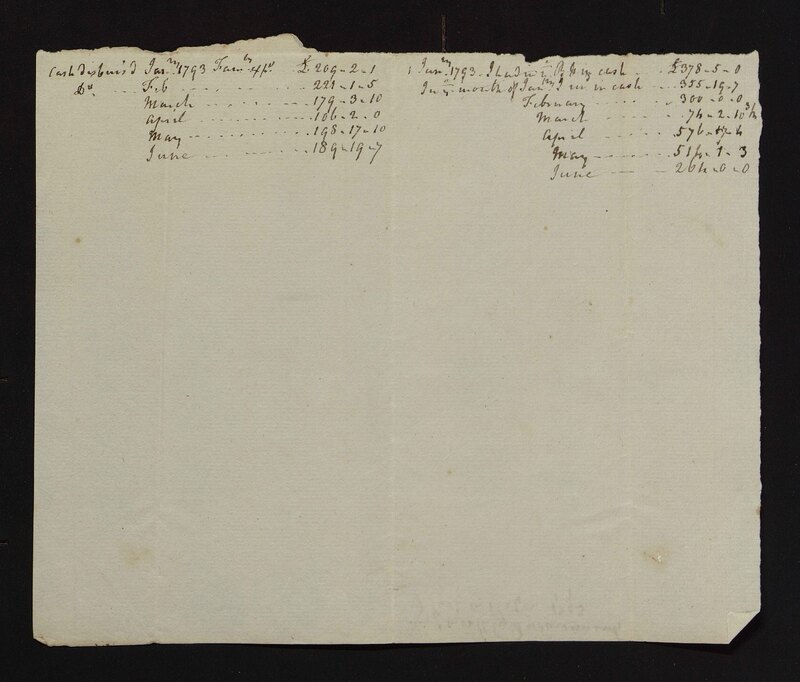 Cash disburs'd Jan.ry 1793 Fam.ly exp.s £ 209-2-1
D.o Feb 221-1-5
March 179-3-10
April 106-2-0
May 198-17-10
June 189-19-7
1 Jan.ry 1793. I had in cash £378-5-0
In ye month of Jan.ry in cash 355-19-7
February 300-0-0
March 74-2-10 3/4
April 576-17-4
May 514-1-3
June 264-0-0